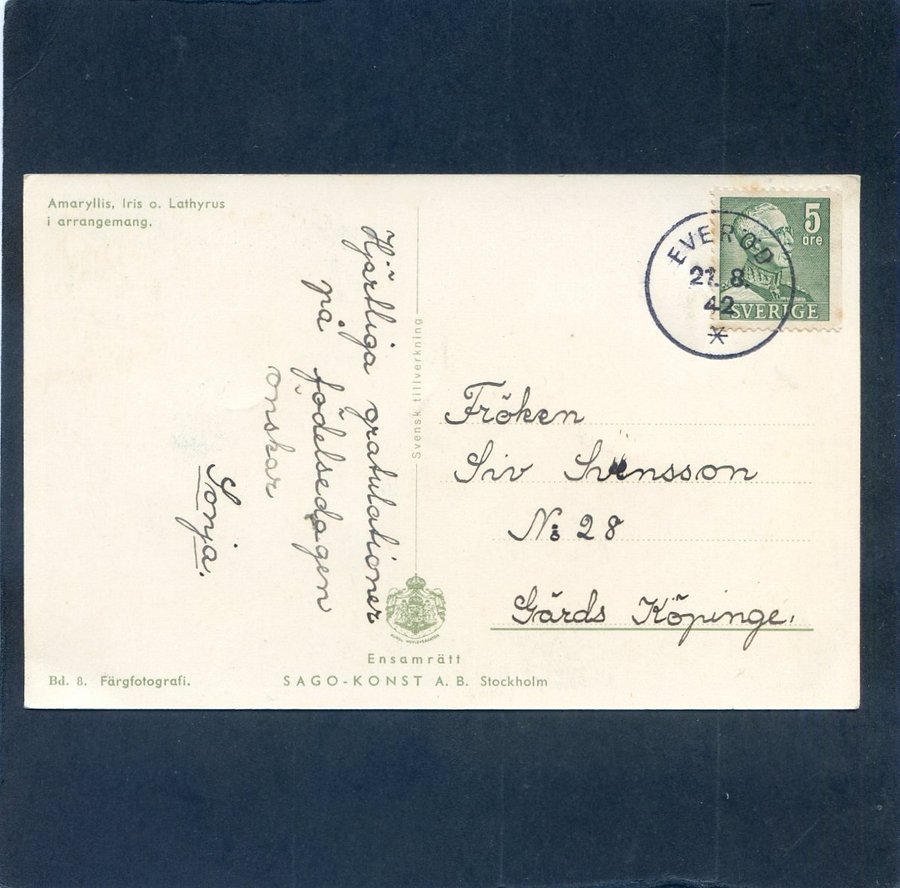 Amaryllis, Iris o. Lathyrus
i arrangemang.
Hjärtliga gratulationer
på födelsedagen
önskar
Sonja.
Svensk tillverkning
EVERÖD
21. 8.
42
5
öre
SVERIGE
Fröken
Siv Svensson
No 28
Gärds Köpinge.
Ensamrätt
Bd. 8. Färgfotografi.
SAGO-KONST A. B. Stockholm